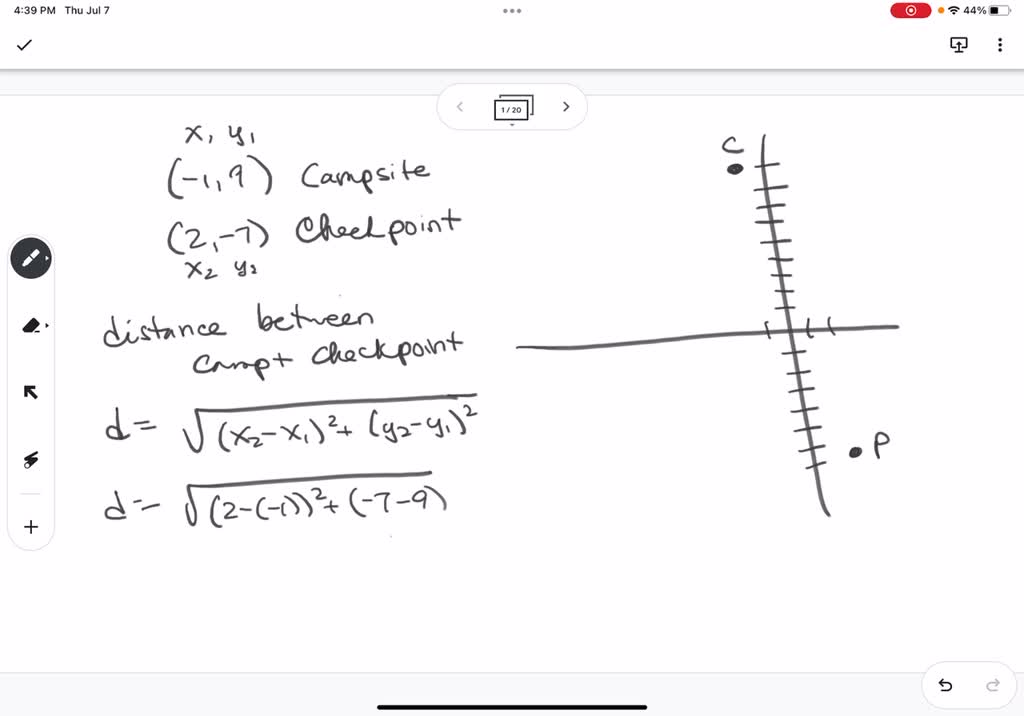 4:39 PM Thu Jul 7
44%
1 / 20
x, y₁
(-1, 9) Campsite
(2, -7) Checkpoint
x₂ y₂
distance between
Camp + Checkpoint
d = √(x₂-x₁)²+(y₂-y₁)²
d = √(2-(-1))²+(-7-9)
C
P